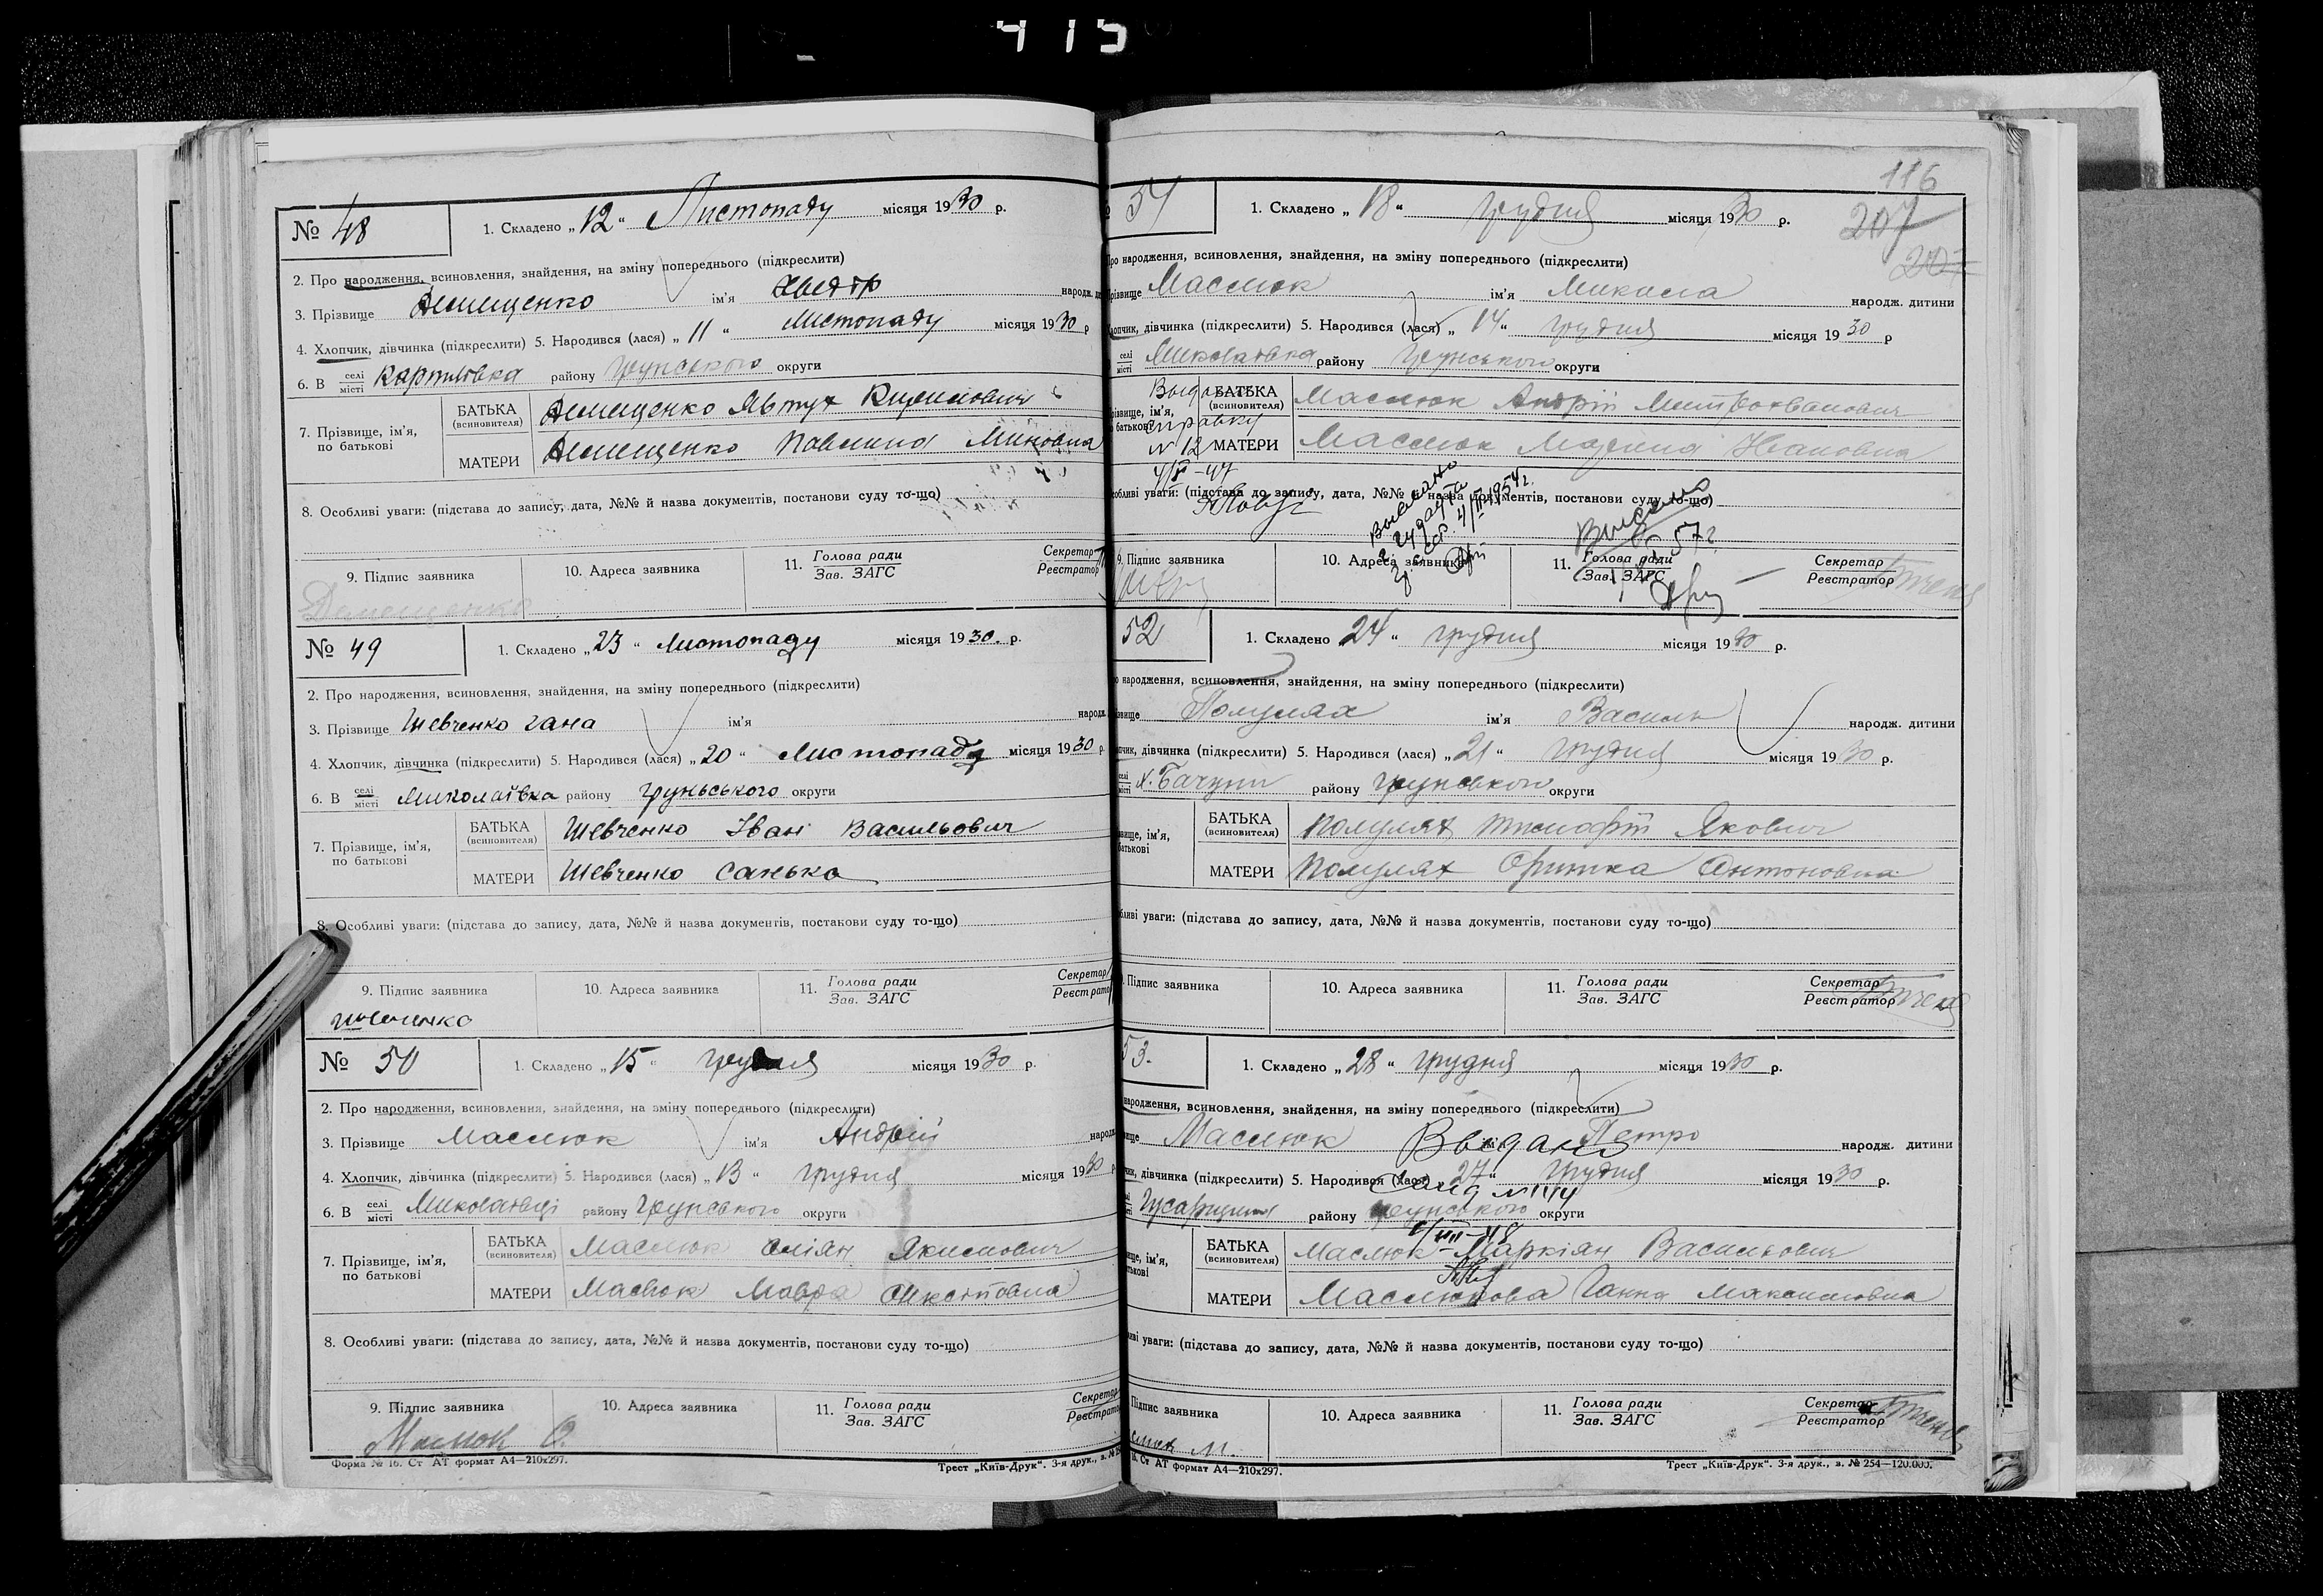 415
№ 48
1. Складено „ 12 “ Листопаду місяця 1930 р.
2. Про народження, всиновлення, знайдення, на зміну попереднього (підкреслити)
3. Прізвище Демещенко ім'я народж.
4. Хлопчик, дівчинка (підкреслити) 5. Народився (лася) „ 11 “ Листопаду місяця 1930 р
6. В селі місті Карпилівка району Грунського округи
7. Прізвище, ім'я, по батькові
БАТЬКА (всиновителя) Демещенко Явтух
МАТЕРИ Демещенко Павлина Миновна
8. Особливі уваги: (підстава до запису, дата, №№ й назва документів, постанови суду то-що)
9. Підпис заявника 10. Адреса заявника 11. Голова ради Зав. ЗАГС Секретар Реєстратор
Демещенко
№ 49
1. Складено „ 23 “ Листопаду місяця 1930. р.
2. Про народження, всиновлення, знайдення, на зміну попереднього (підкреслити)
3. Прізвище Шевченко Гана ім'я народж.
4. Хлопчик, дівчинка (підкреслити) 5. Народився (лася) „ 20 “ Листопаду місяця 1930 р
6. В селі місті Миколаївка району Груньського округи
7. Прізвище, ім'я, по батькові
БАТЬКА (всиновителя) Шевченко Іван Васильович
МАТЕРИ Шевченко Санька
8. Особливі уваги: (підстава до запису, дата, №№ й назва документів, постакови суду то-що)
9. Підпис заявника 10. Адреса заявника 11. Голова ради Зав. ЗАГС Секретар Реєстратор
№ 50
1. Складено „ 15 “ грудня місяця 1930 р.
2. Про народження, всиновлення, знайдення, на зміну попереднього (підкреслити)
3. Прізвище Маслюк ім'я Андрій народж.
4. Хлопчик, дівчинка (підкреслити) 5. Народився (лася) „ 13 “ грудня місяця 1930 р
6. В селі місті Миколаївці району Грунського округи
7. Прізвище, ім'я, по батькові
БАТЬКА (всиновителя) Маслюк Оміян Якимович
МАТЕРИ Маслюк Мавра
8. Особливі уваги: (підстава до запису, дата, №№ й назва документів, постанови суду то-що)
9. Підпис заявника 10. Адреса заявника 11. Голова ради Зав. ЗАГС Секретар Реєстратор
Маслюк О.
Форма № 16. Ст АТ формат А4—210х297.
Трест „Київ-Друк“. 3-я друк., з. №
116
207
207
51
1. Складено „ 18 “ грудня місяця 1930 р.
Про народження, всиновлення, знайдення, на зміну попереднього (підкреслити)
Прізвище Маслюк ім'я Микола народж. дитини
Хлопчик, дівчинка (підкреслити) 5. Народився (лася) „ 14 “ грудня місяця 1930 р
селі місті Миколаївка району Грунського округи
Прізвище, ім'я, по батькові
БАТЬКА (всиновителя) Маслюк Андрій Митрохванович
МАТЕРИ Маслюк Мария Івановна
справку
N 12
Особливі уваги: (підстава до запису, дата, №№ й назва документів, постанови суду то-що)
1954г.
57г.
9. Підпис заявника 10. Адреса заявника 11. Голова ради Зав. ЗАГС Секретар Реєстратор
52
1. Складено „ 24 “ грудня місяця 1930 р.
народження, всиновлення, знайдення, на зміну попереднього (підкреслити)
Полулях ім'я Василь народж. дитини
дівчинка (підкреслити) 5. Народився (лася) „ 21 “ грудня місяця 1930 р.
х. Бачути району Грунського округи
БАТЬКА (всиновителя) Полулях Тимофій Якович
МАТЕРИ Полулях Оришка Антоновна
уваги: (підстава до запису, дата, №№ й назва документів, постанови суду то-що)
Підпис заявника 10. Адреса заявника 11. Голова ради Зав. ЗАГС Секретар Реєстратор
53.
1. Складено „ 28 “ грудня місяця 1930 р.
народження, всиновлення, знайдення, на зміну попереднього (підкреслити)
Маслюк ім'я Петро народж. дитини
Выдано
дівчинка (підкреслити) 5. Народився (лася) „ 27 “ грудня місяця 1930 р.
району Грунського округи
БАТЬКА (всиновителя) Маслюк Маркіян Васильович
МАТЕРИ Маслюкова Ганна Максимовна
уваги: (підстава до запису, дата, №№ й назва документів, постанови суду то-що)
Підпис заявника 10. Адреса заявника 11. Голова ради Зав. ЗАГС Секретар Реєстратор
Ст АТ формат А4—210х297.
Трест „Київ-Друк“. 3-я друк., з. № 254—120.000.